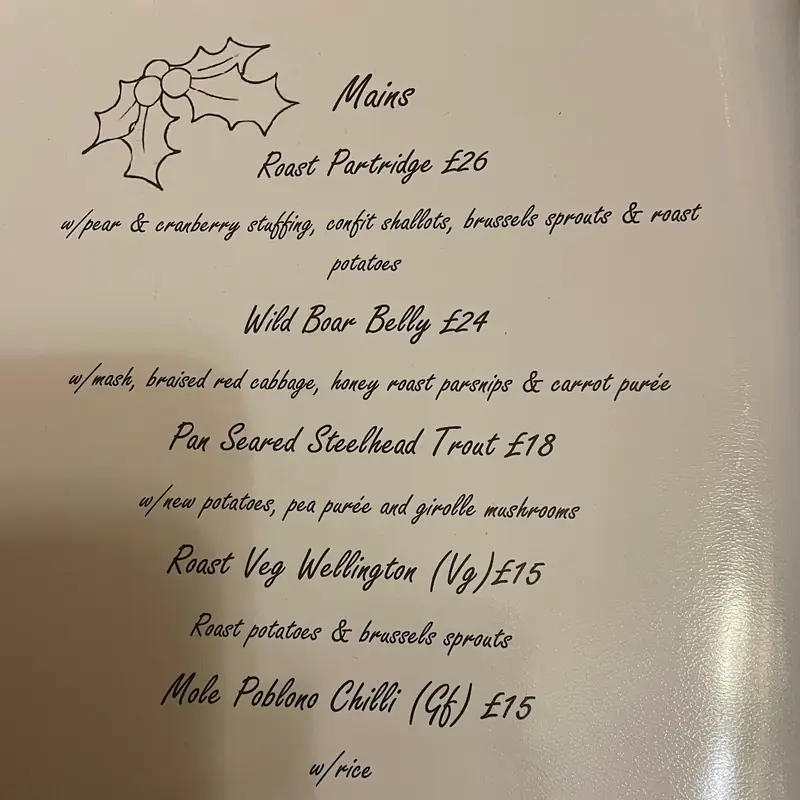 Mains
Roast Partridge £26
w/pear & cranberry stuffing, confit shallots, brussels sprouts & roast
potatoes
Wild Boar Belly £24
w/mash, braised red cabbage, honey roast parsnips & carrot purée
Pan Seared Steelhead Trout £18
w/new potatoes, pea purée and girolle mushrooms
Roast Veg Wellington (Vg)£15
Roast potatoes & brussels sprouts
Mole Poblono Chilli (Gf) £15
w/rice